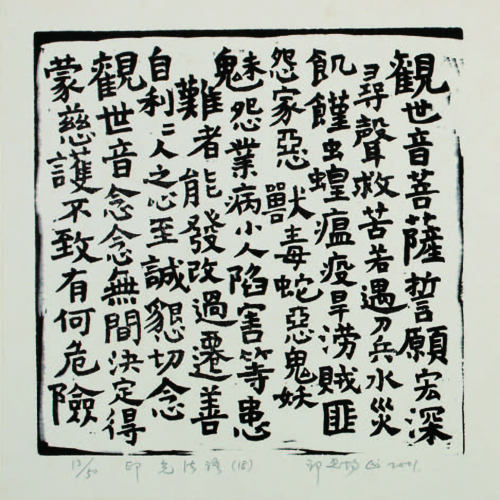 觀世音菩薩誓願宏深
尋聲救苦若遇刀兵水災
飢饉虫蝗瘟疫旱澇賊匪
怨家惡獸毒蛇惡鬼妖
魅怨業病小人陷害等患
難者能發改過遷善
自利利人之心至誠懇切念
觀世音念念無間決定得
蒙慈護不致有何危險
13/50 印光法語(18) 2001